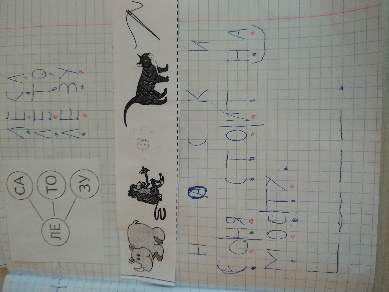 СА
ТО
ЗУ
ЛЕ
ЛЕСА
ЛЕТО
ЛЕЗУ
Н О С К И
Соня стоит на
мосту.